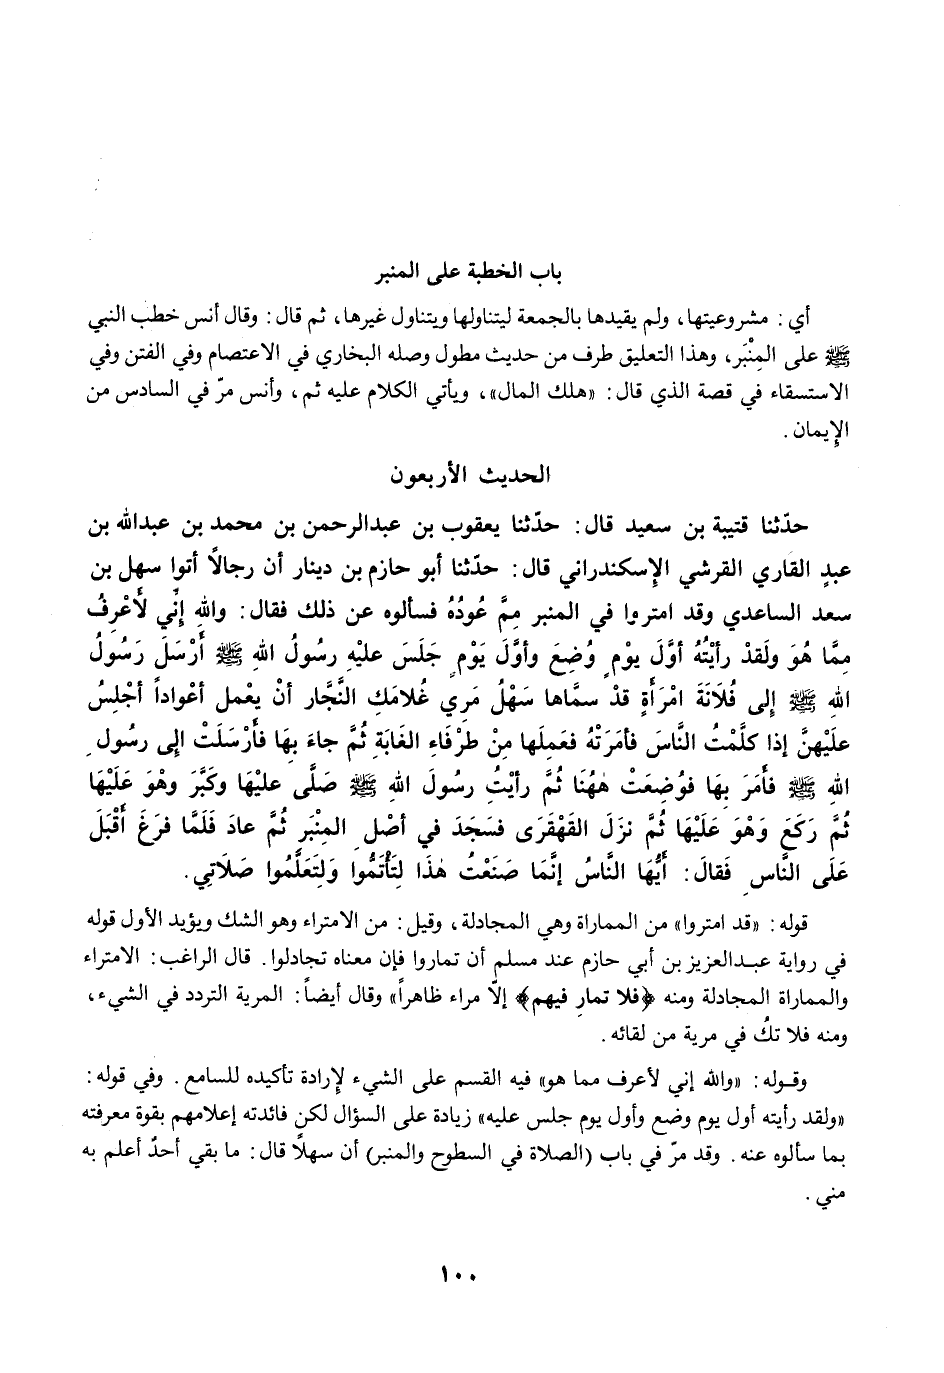 باب الخطبة على المنبر
أي: مشروعيتها، ولم يقيدها بالجمعة ليتناولها ويتناول غيرها، ثم قال: وقال أنس خطب النبي
ﷺ على المِنْبَر، وهذا التعليق طرف من حديث مطول وصله البخاري في الاعتصام وفي الفتن وفي
الاستسقاء في قصة الذي قال: «هلك المال»، ويأتي الكلام عليه ثم، وأنس مرّ في السادس من
الإِيمان.
الحديث الأربعون
حدّثنا قتيبة بن سعيد قال: حدّثنا يعقوب بن عبدالرحمن بن محمد بن عبدالله بن
عبدٍ القاري القرشي الإِسكندراني قال: حدّثنا أبو حازم بن دينار أن رجالاً أتوا سهل بن
سعد الساعدي وقد امتروا في المنبر مِمَّ عُودُهُ فسألوه عن ذلك فقال: واللهِ إنِّي لَأعْرِفُ
مِمَّا هُوَ ولَقدْ رأيْتُهُ أوَّلَ يوْمٍ وُضِعَ وأوَّلَ يَوْمٍ جَلَسَ عليْهِ رسُولُ اللهِ ﷺ أَرْسَلَ رَسُولُ
اللهِ ﷺ إِلى فُلَانَةَ امْرَأَةٍ قدْ سمَّاها سَهْلٌ مُرِي غُلامَكِ النَّجَّار أنْ يعْمل أعْواداً أجْلِسُ
علَيْهنَّ إذا كلَّمْتُ النَّاسَ فأمَرَتْهُ فعَمِلَها مِنْ طرْفَاءِ الغَابَةِ ثُمَّ جاءَ بِهَا فأرْسَلَتْ إلى رسُولِ
اللهِ ﷺ فأمَرَ بِها فوُضِعَتْ هٰهُنَا ثُمَّ رأيْتُ رسُولَ اللهِ ﷺ صَلَّى عليْهَا وكَبَّرَ وهْوَ عَلَيْهَا
ثُمَّ رَكَعَ وَهْوَ عَلَيْهَا ثُمَّ نزَلَ القَهْقَرَى فسَجَدَ في أصْلِ المِنْبَرِ ثُمَّ عادَ فَلَمَّا فرَغَ أَقْبَلَ
عَلَى النَّاسِ فَقالَ: أَيُّهَا النَّاسُ إنَّمَا صَنَعْتُ هٰذَا لِتَأْتَمُّوا وَلِتَعَلَّمُوا صَلَاتِي.
قوله: «قد امتروا» من المماراة وهي المجادلة، وقيل: من الامتراء وهو الشك ويؤيد الأول قوله
في رواية عبدالعزيز بن أبي حازم عند مسلم أن تماروا فإن معناه تجادلوا. قال الراغب: الامتراء
والمماراة المجادلة ومنه ﴿فلا تمارِ فيهم﴾ إلّا مراء ظاهراً» وقال أيضاً: المرية التردد في الشيء،
ومنه فلا تكُ في مرية من لقائه.
وقوله: «والله إني لأعرف مما هو» فيه القسم على الشيء لإِرادة تأكيده للسامع. وفي قوله:
«ولقد رأيته أول يوم وضع وأول يوم جلس عليه» زيادة على السؤال لكن فائدته إعلامهم بقوة معرفته
بما سألوه عنه. وقد مرّ في باب (الصلاة في السطوح والمنبر) أن سهلاً قال: ما بقي أحدٌ أعلم به
مني.
١٠٠